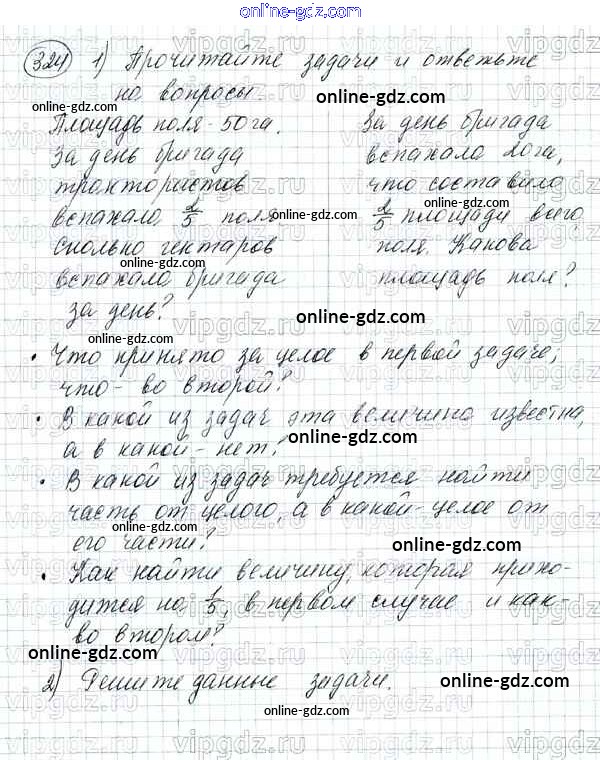 online-gdz.com
324 1) Прочитайте задачи и ответьте
на вопросы.
online-gdz.com online-gdz.com
Площадь поля - 50 га.
За день бригада
трактористов
вспахала 2/5 поля
Сколько гектаров
вспахала бригада
за день?
За день бригада
вспахала 20 га,
что составило
2/5 площади всего
поля. Какова
площадь поля?
online-gdz.com
online-gdz.com
online-gdz.com
online-gdz.com
online-gdz.com
• Что принято за целое в первой задаче,
что - во второй?
online-gdz.com
• В какой из задач эта величина известна,
а в какой - нет?
online-gdz.com
• В какой из задач требуется найти
часть от целого, а в какой - целое от
его части?
online-gdz.com
online-gdz.com
• Как найти величину, которая прихо-
дится на 1/5, в первом случае и как -
во втором?
online-gdz.com
online-gdz.com
2) Решите данные задачи.
online-gdz.com
vipgdz.ru